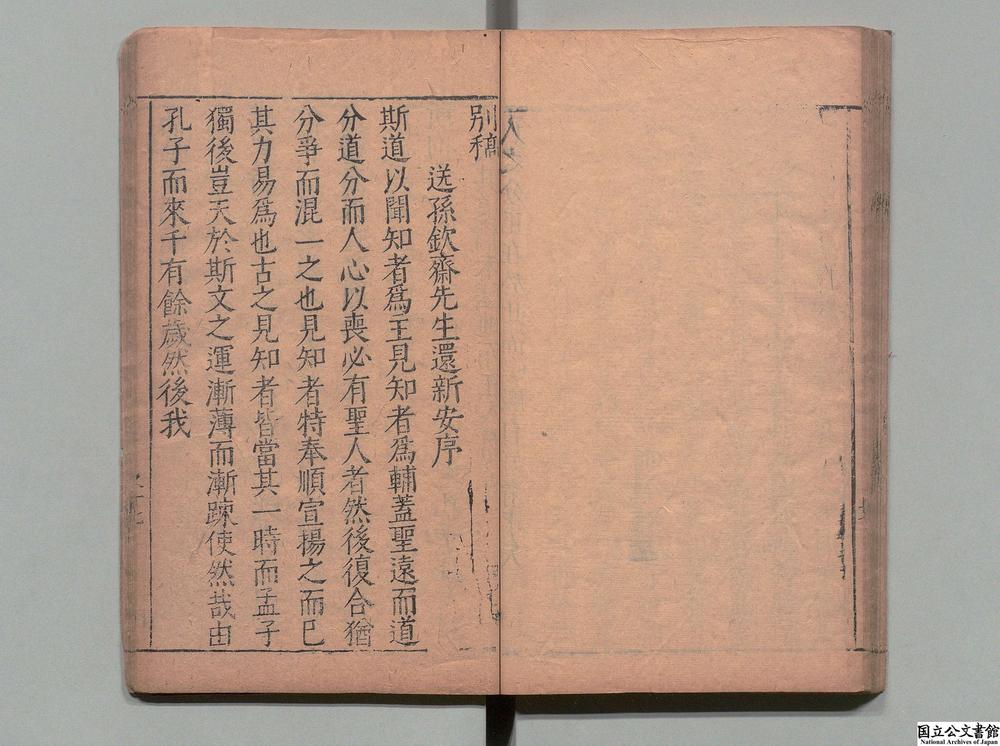 别稿
送孫欽齋先生還新安序
斯道以聞知者爲王見知者爲輔蓋聖遠而道
分道分而人心以喪必有聖人者然後復合猶
分爭而混一之也見知者特奉順宣揚之而已
其力易爲也古之見知者皆當其一時而孟子
獨後豈天於斯文之運漸薄而漸踈使然哉由
孔子而來千有餘歲然後我
国立公文書館
National Archives of Japan